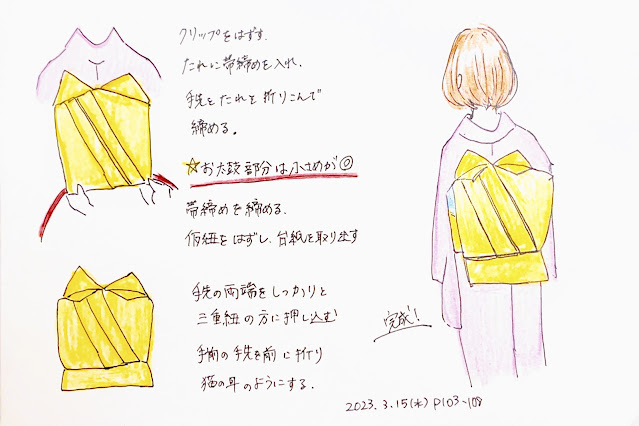 クリップをはずす.
たれに帯締めを入れ.
手先をたれと折りこんで
締める。
☆お太鼓部分は小さめが◎
帯締めを締める.
仮紐をはずし、台紙を取り出す
手先の両端をしっかりと
三重紐の方に押し込む
手前の手先を前に折り
猫の耳のようにする.
完成!
2023.3.15(水) P103~108